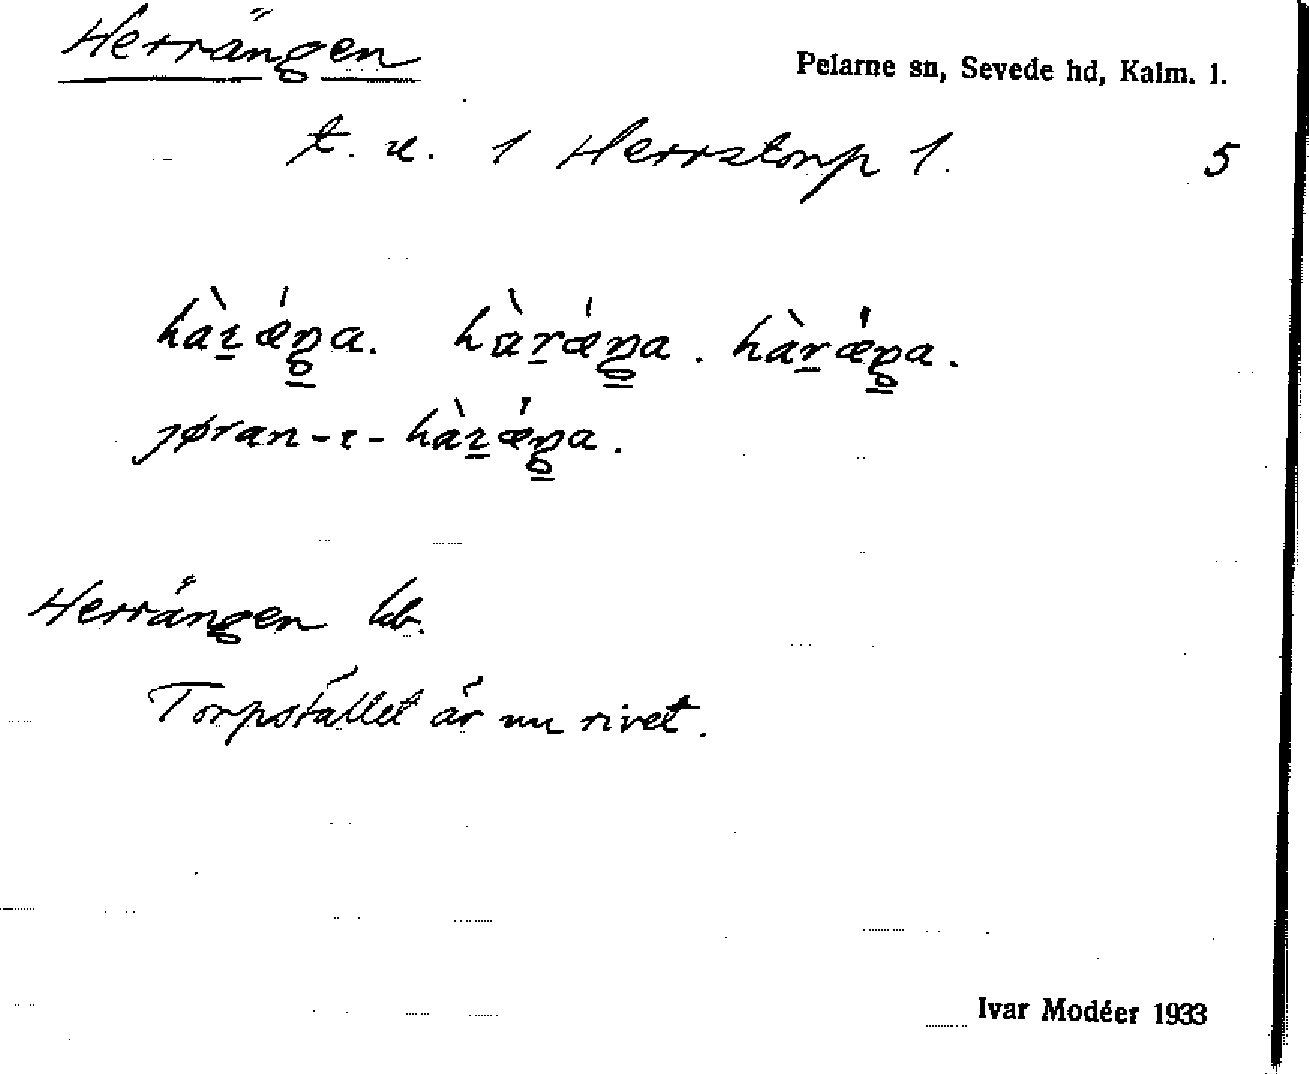 Herrängen
Pelarne sn, Sevede hd, Kalm. l.
t. u. 1 Herrstorp 1. 5
hàr̲ǽŋa. hàr̲ǽŋa. hàr̲ǽŋa.
jøran-ı-hàr̲ǽŋa.
Herrängen hb.
Torpstället är nu rivet.
Ivar Modéer 1933